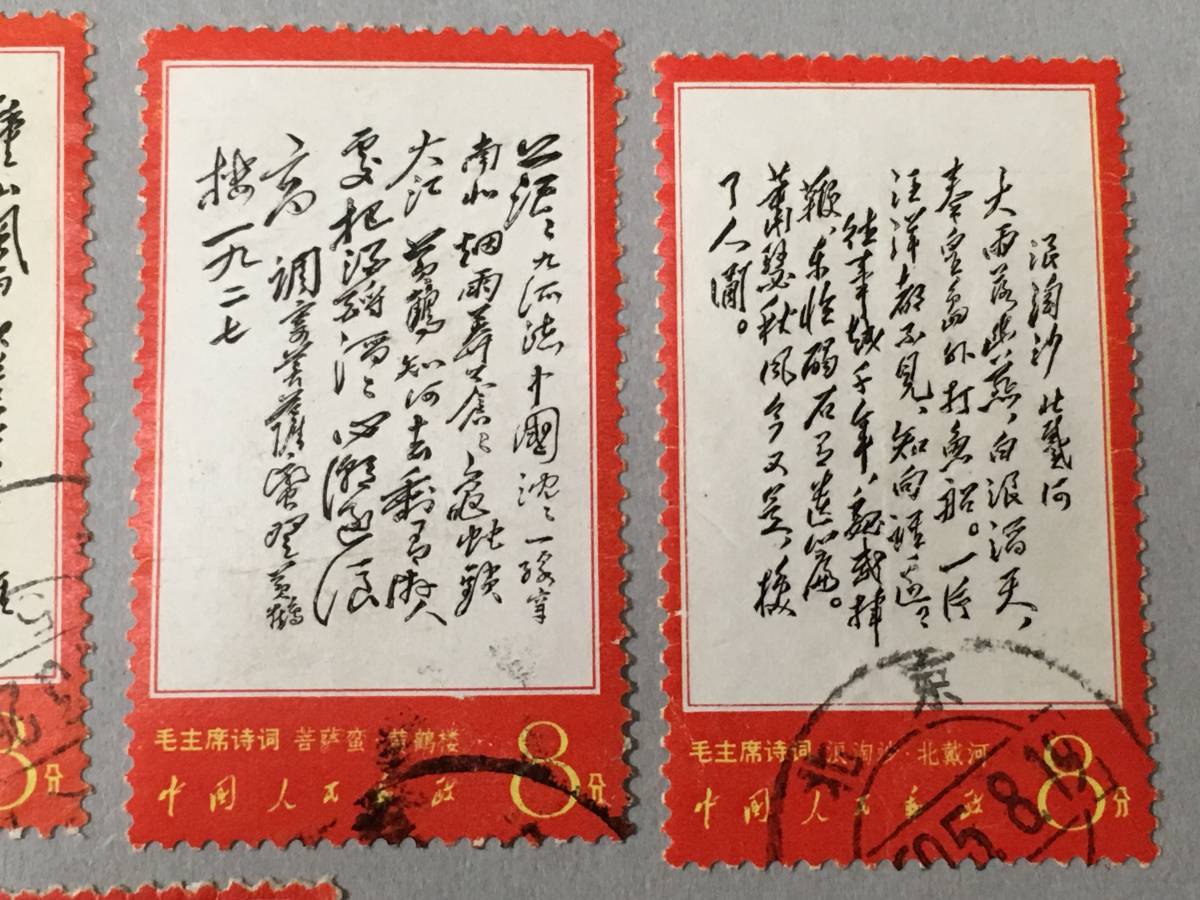 山風雨
8分
茫〻九派流中國沈〻一線穿
南北烟雨莽苍〻龜蛇鎖
大江黄鶴知何去剩有游人
處把酒酹滔〻心潮逐浪
高 調寄菩薩蠻登黄鶴
楼一九二七
毛主席诗词 菩萨蛮·黄鹤楼
中国人民邮政
8分
浪淘沙 北戴河
大雨落幽燕、白浪滔天、
秦皇島外打魚船。一片
汪洋都不見、知向誰邊〻
往事越千年、魏武揮
鞭、东临碣石有遗篇。
蕭瑟秋風今又是、换
了人间。
毛主席诗词 浪淘沙·北戴河
中国人民邮政
8分
北京